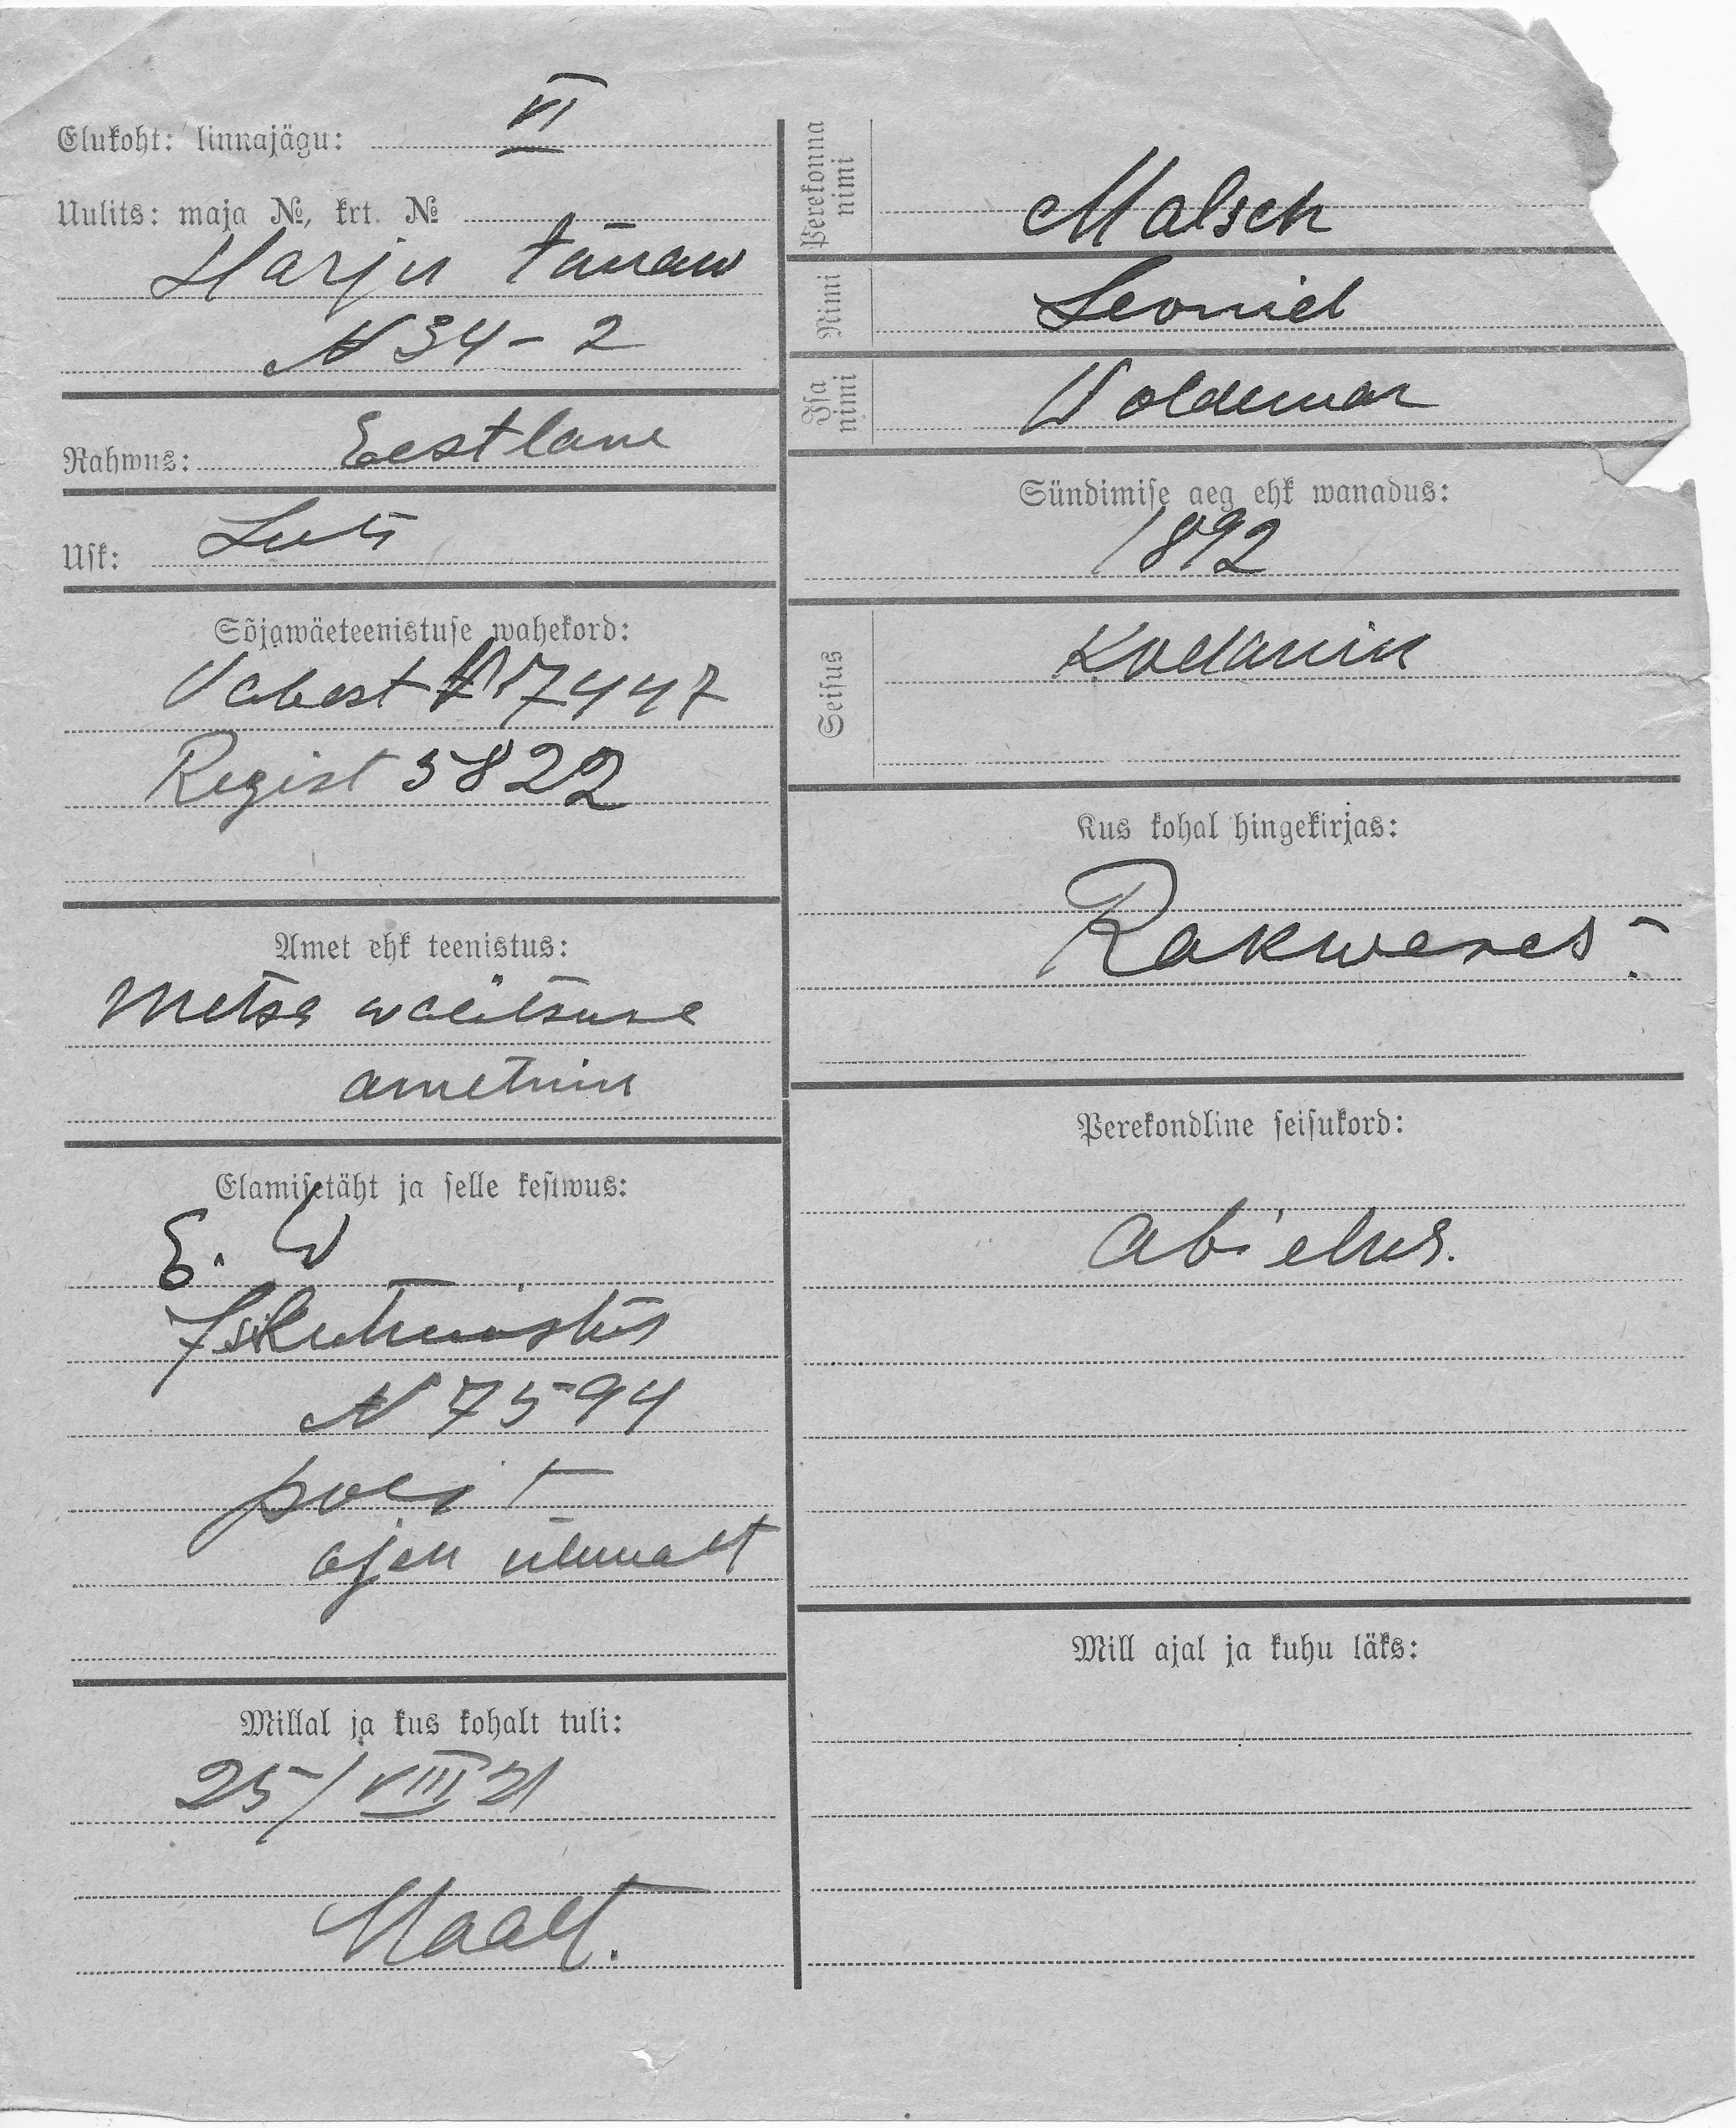 Elukoht: linnajägu: VI
Uulits: maja №, krt. №
Harju tänaw
N 34-2
Rahwus: Eestlane
Usk: Luts
Sõjawäeteenistuse wahekord:
Vabast N 7447
Regist 5822
Amet ehk teenistus:
Metsa walitsuse
ametnik
Elamisetäht ja selle kestwus:
E. W
Isikutunistus
N 7594
polit
ajen ülemalt
Millal ja kus kohalt tuli:
25/VIII 21
Maalt.
Perekonna nimi
Malsch
Nimi
Leonid
Isa nimi
Woldemar
Sündimise aeg ehk wanadus:
1892
Seisus
Kodanik
Kus kohal hingekirjas:
Rakweres
Perekondline seisukord:
abielus.
Mill ajal ja kuhu läks: